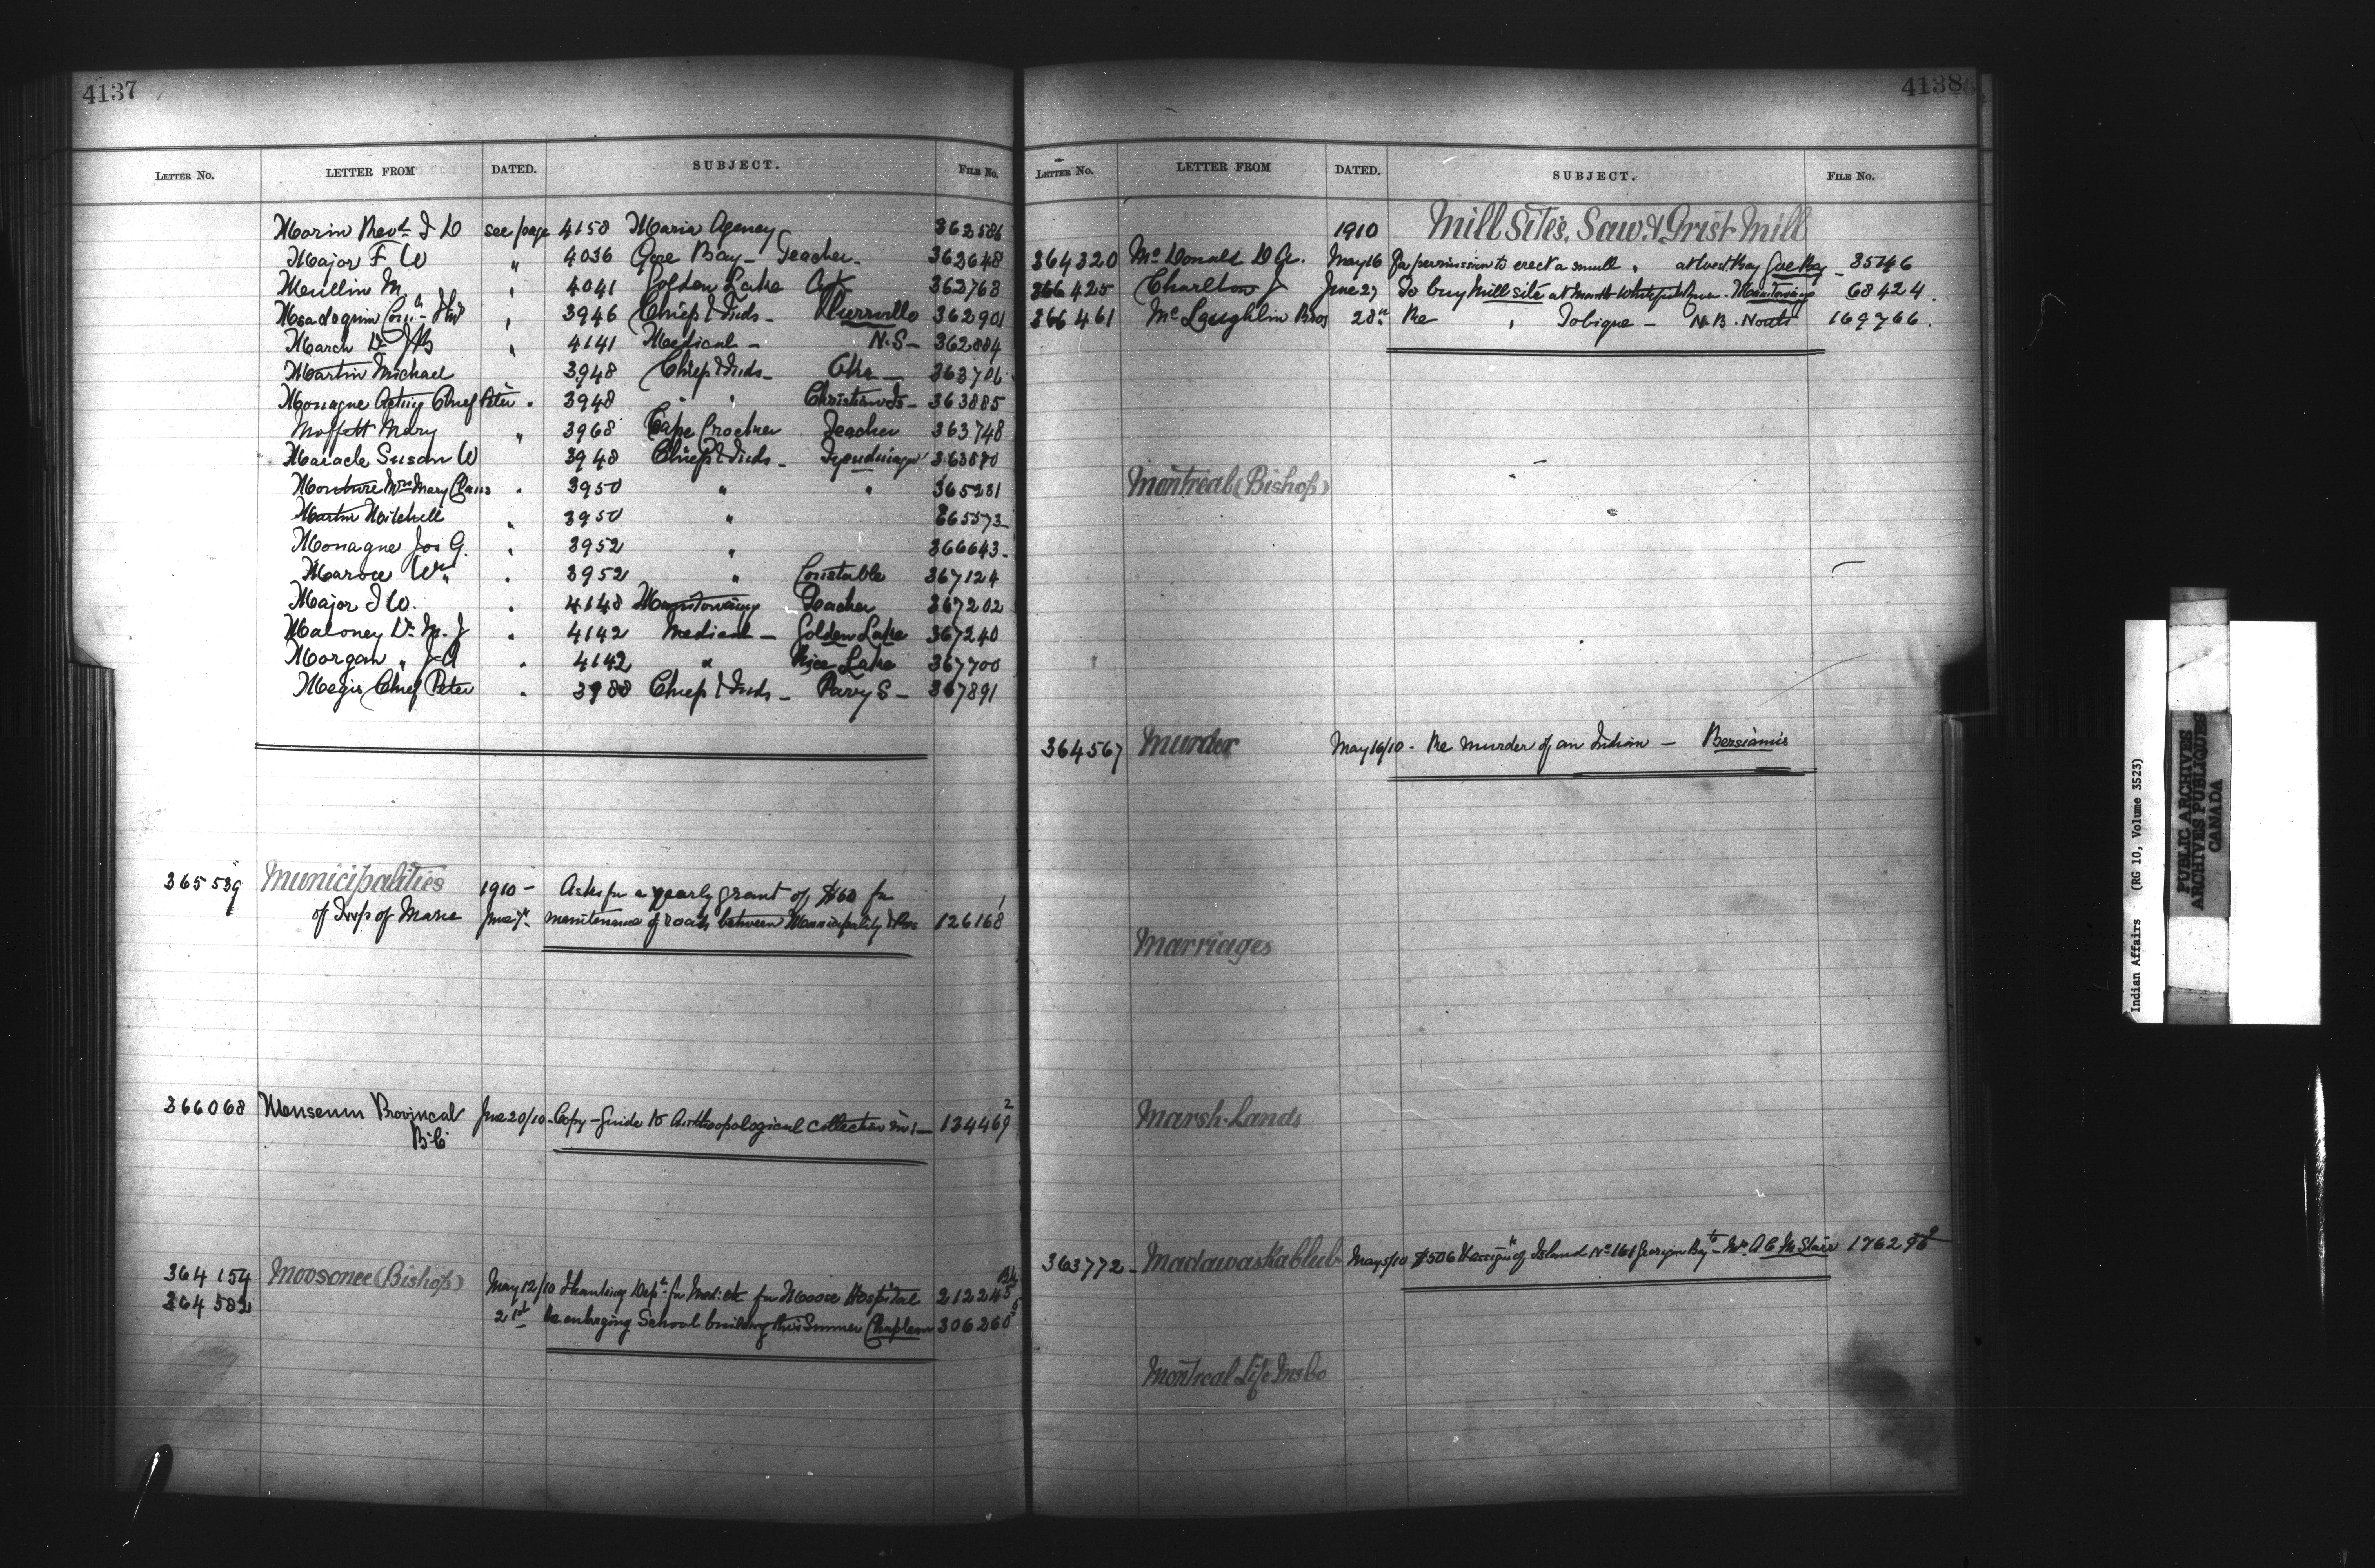 4137
LETTER NO. LETTER FROM DATED. SUBJECT. FILE NO.
Marin Revd J D see page 4158 Maria Agency 362586
Major F W " 4036 Gore Bay - Teacher - 362648
M. " 4041 Golden Lake 362768
" 3946 Chiefs & Inds - 362901
March Dr " 4141 Medical - N.S - 362884
Martin Michael 3948 Chiefs & Inds - Oka - 363706
Monague Acting Chief Peter " 3948 " " Christian Is - 363885
Moffett Mary " 3968 Cape Croker Teacher 363748
Maracle Susan W 3948 Chiefs & Inds - 363870
Mrs Mary " 3950 " " 365231
Martin Mitchell " 3950 " 365573
Monague Jos G. " 3952 " 366643
Wm " 3952 " Constable 367124
Major J W. " 4148 Manitowaning Teacher 367202
Maloney Dr M. J " 4142 Medical - Golden Lake 367240
Morgan " J A " 4142 " Rice Lake 367700
Megis Chief Peter " 3988 Chiefs & Inds - Parry S - 367891
365539 Municipalities 1910 - Asks for a yearly grant of $60 for
of Twp of Maria June 7 maintenance of roads between Municipality & Res 126168 1
366068 Museum Provincial June 20/10 - Copy - Guide to Anthropological collection in - 134469 2
B.C.
364154 Moosonee (Bishop) May 12/10 Thanking Dept for Med. etc for Moose Hospital 212245
364582 21st Re enlarging School building this Summer Chapleau 306260 5
4138
LETTER NO. LETTER FROM DATED. SUBJECT. FILE NO.
1910 Mill Sites, Saw & Grist Mill
364320 McDonald D Gr. May 16 For permission to erect a small " at West Bay Gore Bay - 35746
366425 Charlton J June 27 To buy Mill site at Mouth Whitefish River - Manitowaning 68424.
366461 McLaughlin Bros 28th Re " Tobique - N.B. North 169766.
Montreal (Bishop)
364567 Murder May 16/10 - Re Murder of an Indian - Bersiamis
Marriages
Marsh-Lands
363772 - Madawaska Club May 5/10 $506 & assignt of Island No 161 Georgian Bay to Mr A C McStarr 176298
Montreal Life Ins Co
Indian Affairs (RG 10, Volume 3523)
PUBLIC ARCHIVES
ARCHIVES PUBLIQUES
CANADA